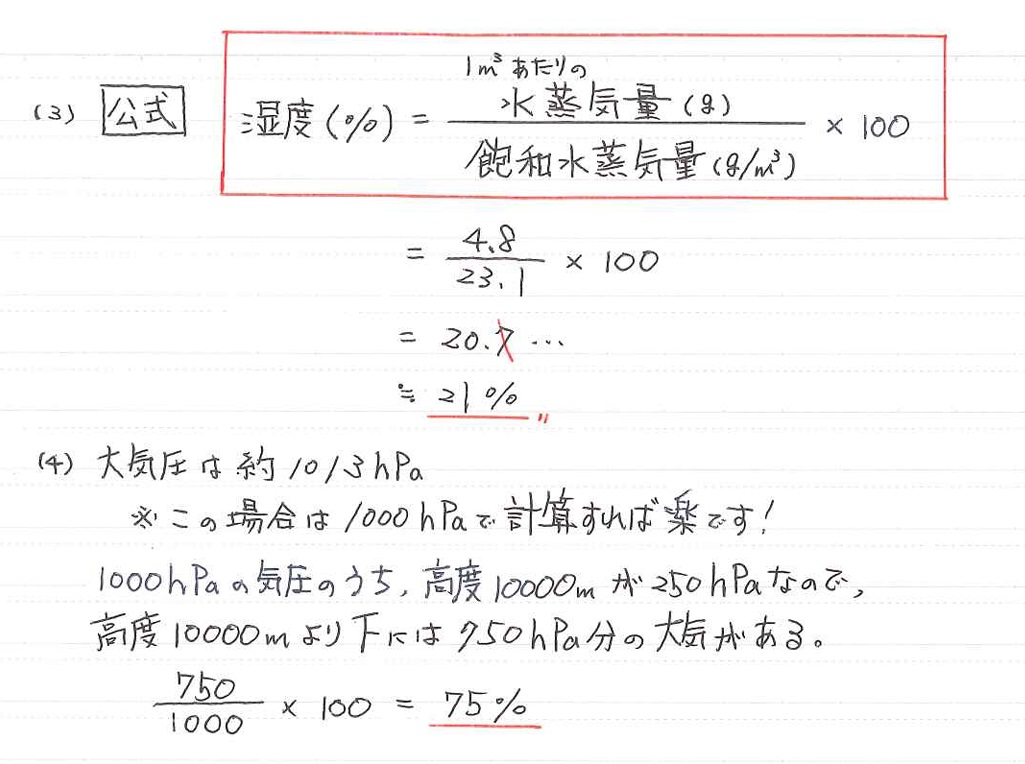 (3) 公式 湿度(%) = 1m³あたりの水蒸気量(g) / 飽和水蒸気量(g/m³) × 100
= 4.8 / 23.1 × 100
= 20.7 …
≒ 21%
(4) 大気圧は約1013hPa
※この場合は1000hPaで計算すれば楽です!
1000hPaの気圧のうち, 高度10000mが250hPaなので,
高度10000mより下には750hPa分の大気がある。
750 / 1000 × 100 = 75%